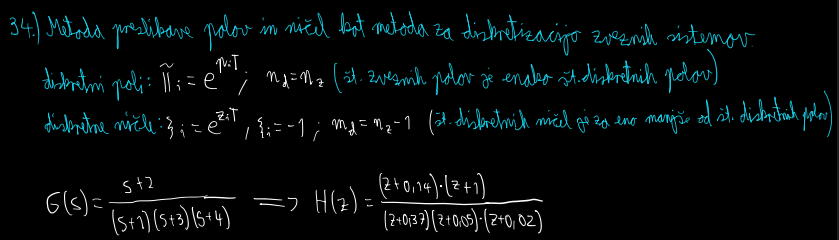 34.) Metoda preslikave polov in ničel kot metoda za diskretizacijo zveznih sistemov
diskretni poli: π̃ᵢ = e^{pᵢT} ; n_d = n_z (št. zveznih polov je enako št. diskretnih polov)
diskretne ničle: ξᵢ = e^{zᵢT} , ξᵢ = -1 ; m_d = n_z - 1 (št. diskretnih ničel je za eno manjše od št. diskretnih polov)
G(s) = \frac{s+2}{(s+1)(s+3)(s+4)} ⟹ H(z) = \frac{(z+0,14)·(z+1)}{(z+0,37)(z+0,05)·(z+0,02)}